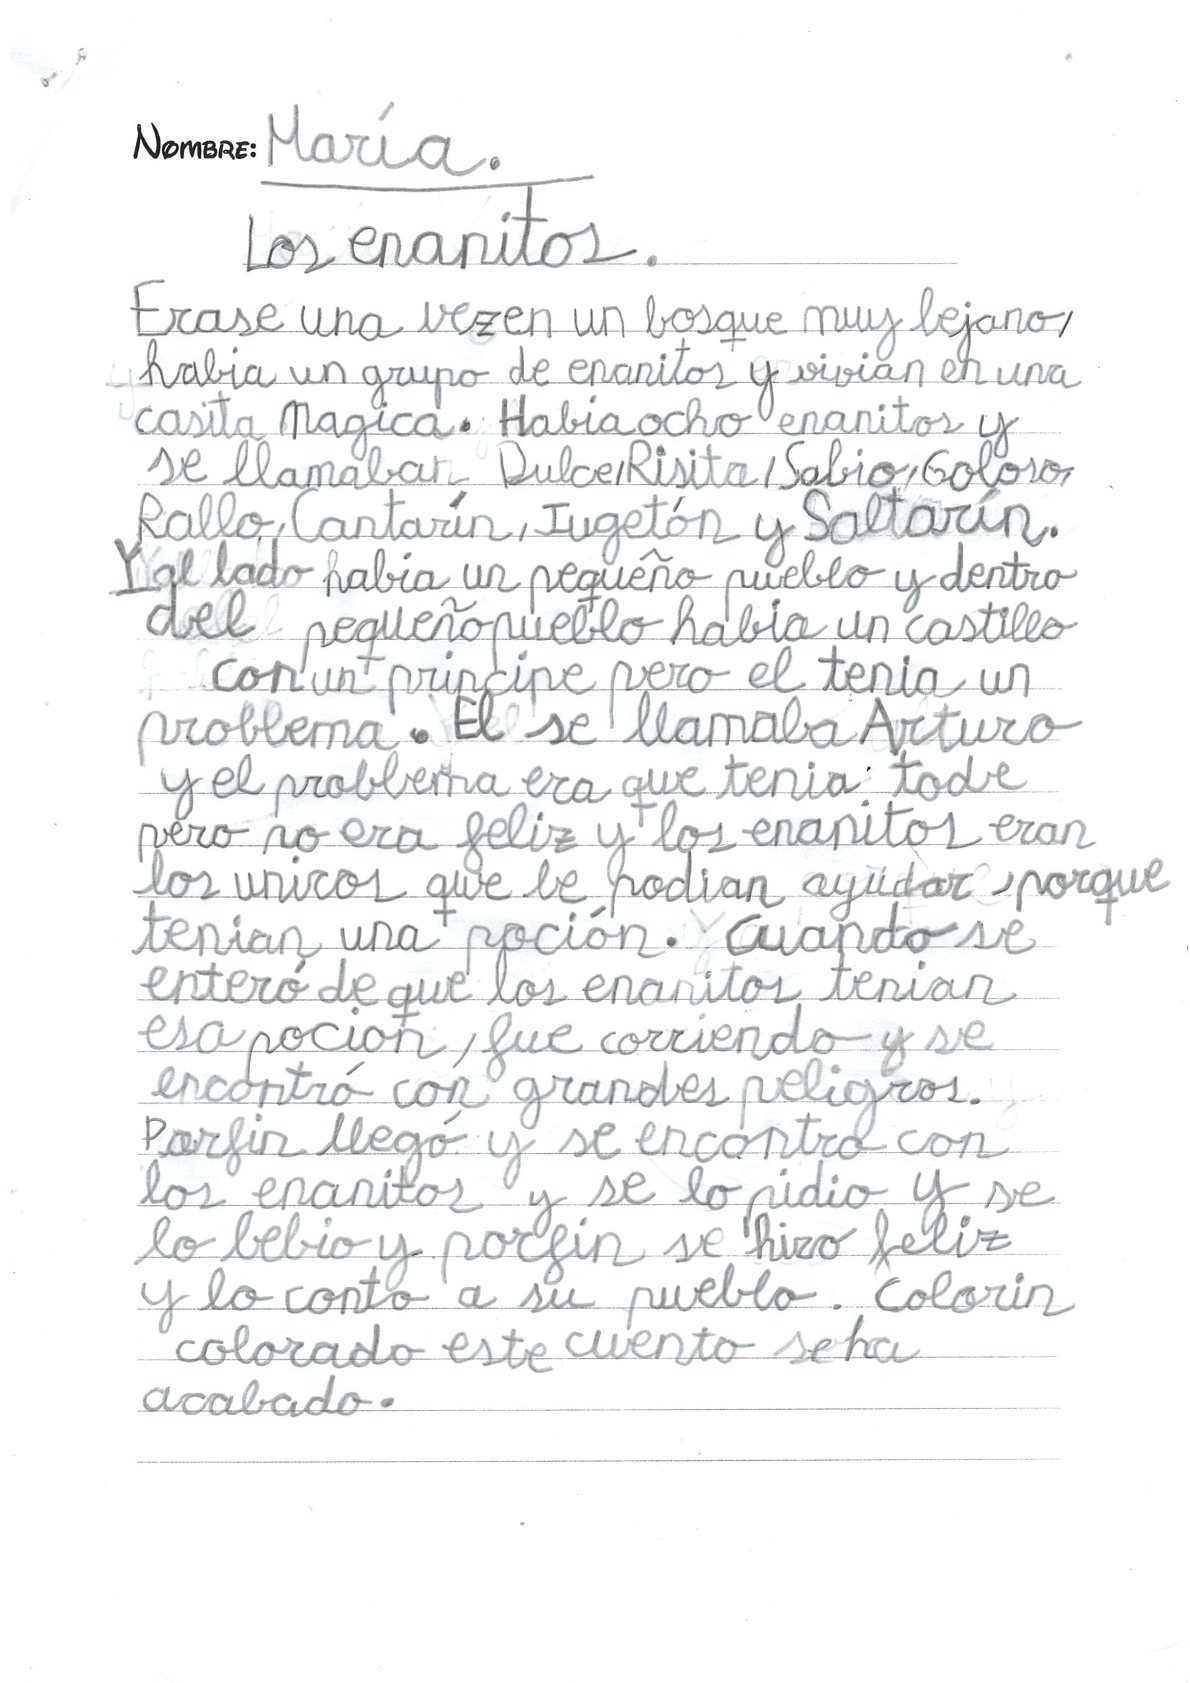 NOMBRE: María.
Los enanitos.
Erase una vez en un bosque muy lejano,
habia un grupo de enanitos y vivian en una
casita magica. Había ocho enanitos y
se llamaban Dulce, Risita, Sabio, Goloso,
Rallo, Cantarín, Jugetón y Saltarín.
Y al lado habia un pequeño pueblo y dentro
del pequeño pueblo habia un castillo
con un principe pero el tenia un
problema. El se llamaba Arturo
y el problema era que tenia tode
pero no era feliz y los enanitos eran
los unicos que le podian ayudar, porque
tenian una poción. Cuando se
enteró de que los enanitos tenian
esa poción, fue corriendo y se
encontró con grandes peligros.
Porfin llegó y se encontro con
los enanitos y se lo pidio y se
lo bebio y porfin se hizo feliz
y lo conto a su pueblo. Colorin
colorado este cuento se ha
acabado.